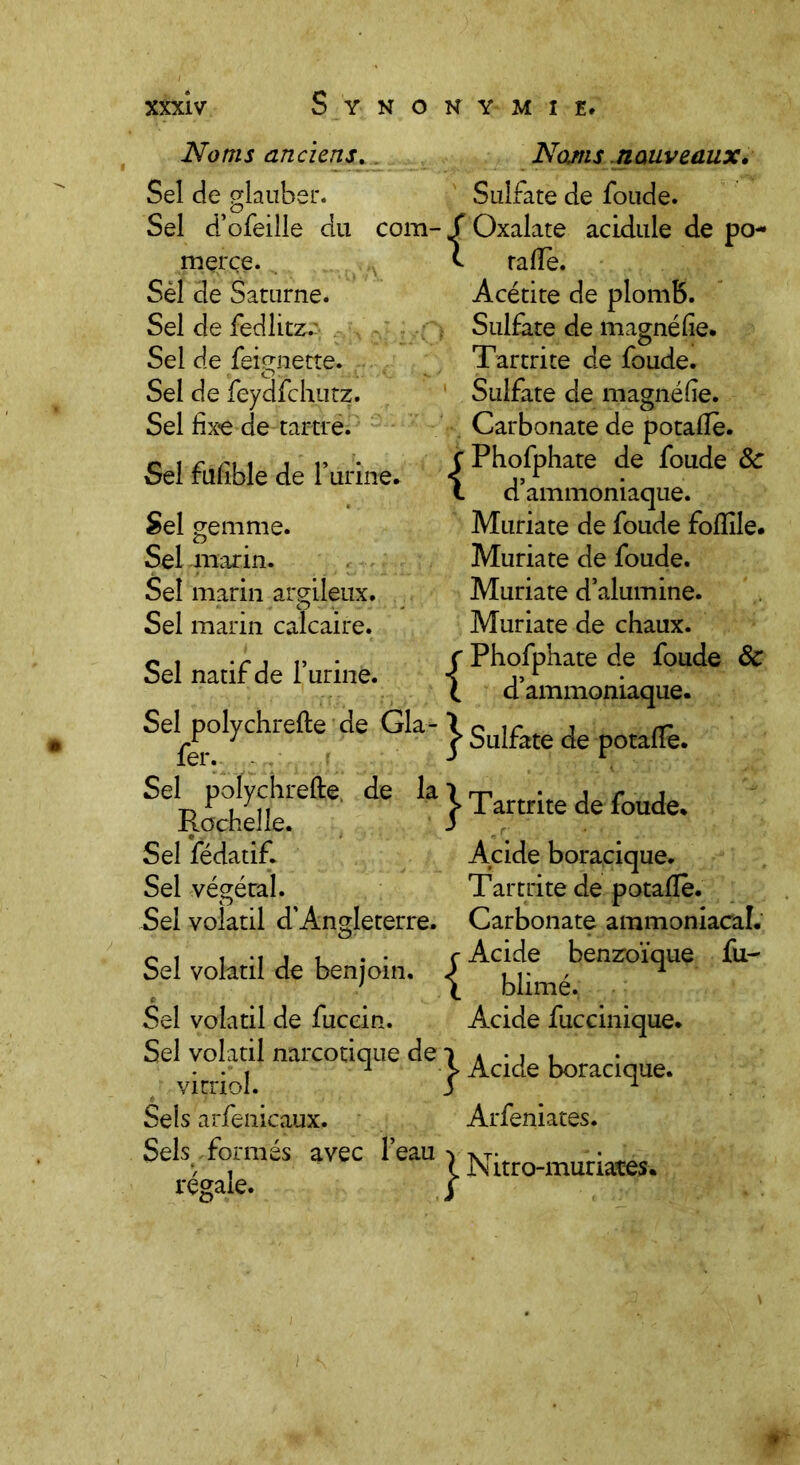 xxxiv SYNONYMIE.
Noms anciens. Noms nouveaux.
Sel de glauber. Sulfate de ſoude.
Sel d'oſeille du com- { Oxalate acidule de po-
merce. taſſe.
Sel de Saturne. Acétite de plomb.
Sel de ſedlitz. Sulfate de magnéſie.
Sel de ſeignette. Tartrite de ſoude.
Sel de ſeydſchutz. Sulfate de magnéſie.
Sel fixe de tartre. Carbonate de potaſſe.
Sel fuſible de l'urine. { Phoſphate de ſoude &
d'ammoniaque.
Sel gemme. Muriate de ſoude foſſile.
Sel marin. Muriate de ſoude.
Sel marin argileux. Muriate d'alumine.
Sel marin calcaire. Muriate de chaux.
Sel natif de l'urine. { Phoſphate de ſoude &
d'ammoniaque.
Sel polychreſte de Gla- } Sulfate de potaſſe.
ſer.
Sel polychreſte de la } Tartrite de ſoude.
Rochelle.
Sel ſédatif. Acide boracique.
Sel végétal. Tartrite de potaſſe.
Sel volatil d'Angleterre. Carbonate ammoniacal.
Sel volatil de benjoin. { Acide benzoïque ſu-
blimé.
Sel volatil de ſuccin. Acide ſuccinique.
Sel volatil narcotique de } Acide boracique.
vitriol.
Sels arſenicaux. Arſeniates.
Sels formés avec l'eau } Nitro-muriates.
régale.